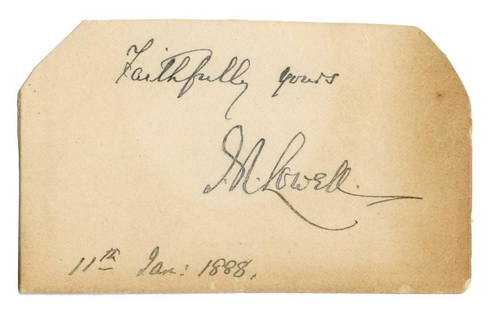 Faithfully yours
J.R. Lowell.
11th Jan: 1888.